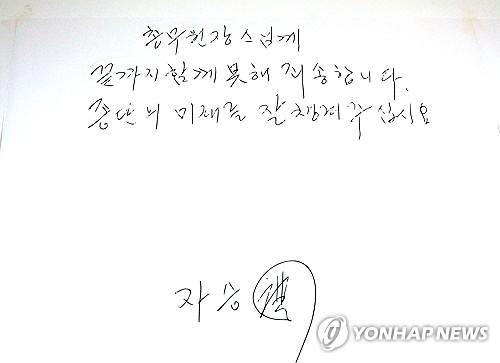 총무원장스님께
끝까지함께못해 죄송합니다.
종단의 미래를 잘 챙겨 주십시요
자승
YONHAP NEWS